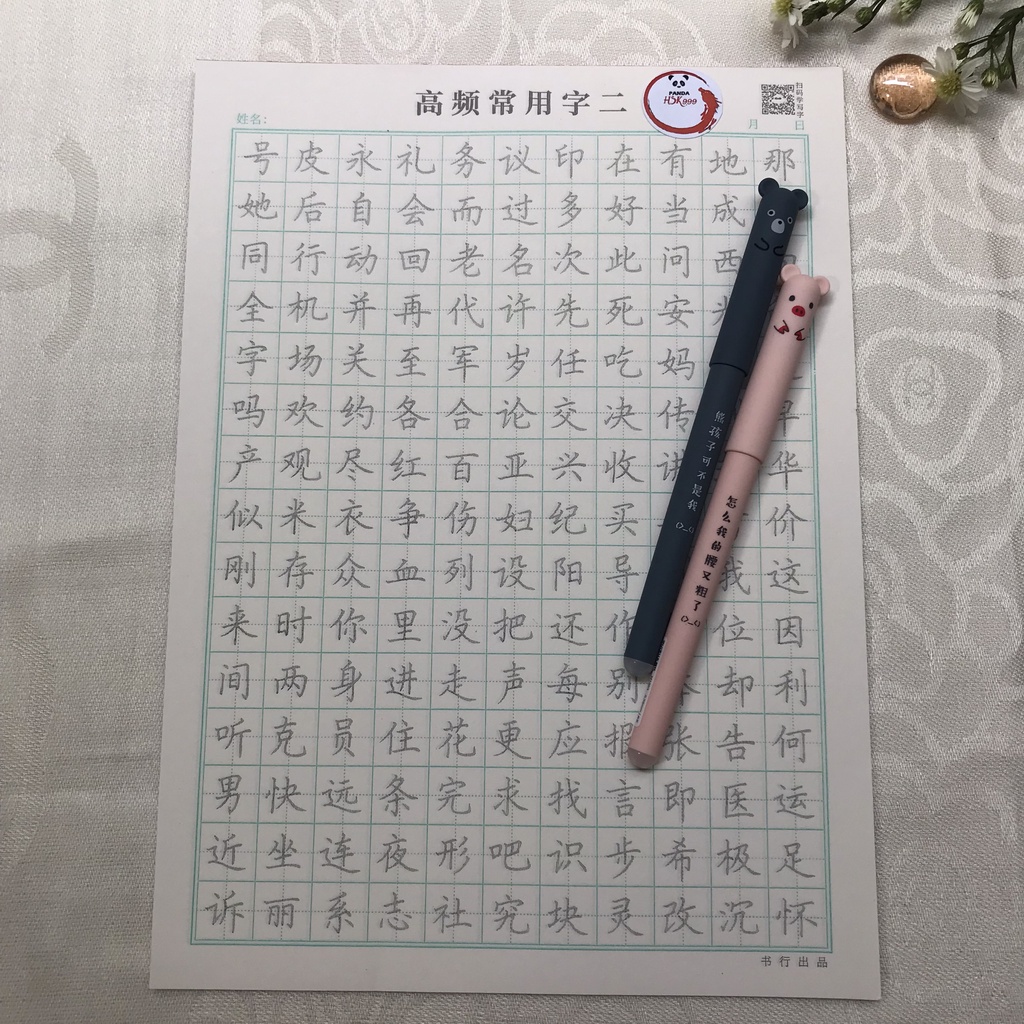 高频常用字二
PANDA
HSK999
扫码学写字
姓名：
月 日
号皮永礼务议印在有地那
她后自会而过多好当成
同行动回老名次此问西
全机并再代许先死安
字场关至军岁任吃妈
吗欢约各合论交决传早
产观尽红百亚兴收讲华
似米衣争伤妇纪买价
刚存众血列设阳导我这
来时你里没把还作位因
间两身进走声每别却利
听克员住花更应报张告何
男快远条完求找言即医运
近坐连夜形吧识步希极足
诉丽系志社究块灵改沉怀
书行出品
熊孩子可不是我
怎么我的腰又粗了